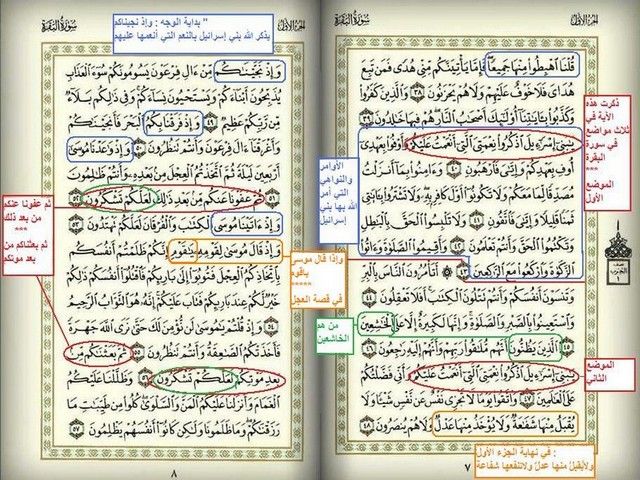 سُورَةُ البَقَرَةِ
الجُزْءُ الأَوَّلُ
قُلْنَا ٱهْبِطُوا۟ مِنْهَا جَمِيعًا فَإِمَّا يَأْتِيَنَّكُم مِّنِّى هُدًى فَمَن تَبِعَ
هُدَاىَ فَلَا خَوْفٌ عَلَيْهِمْ وَلَا هُمْ يَحْزَنُونَ ٣٨ وَٱلَّذِينَ كَفَرُوا۟
وَكَذَّبُوا۟ بِـَٔايَـٰتِنَآ أُو۟لَـٰٓئِكَ أَصْحَـٰبُ ٱلنَّارِ هُمْ فِيهَا خَـٰلِدُونَ ٣٩
يَـٰبَنِىٓ إِسْرَٰٓءِيلَ ٱذْكُرُوا۟ نِعْمَتِىَ ٱلَّتِىٓ أَنْعَمْتُ عَلَيْكُمْ وَأَوْفُوا۟ بِعَهْدِىٓ
أُوفِ بِعَهْدِكُمْ وَإِيَّـٰىَ فَٱرْهَبُونِ ٤٠ وَءَامِنُوا۟ بِمَآ أَنزَلْتُ
مُصَدِّقًا لِّمَا مَعَكُمْ وَلَا تَكُونُوٓا۟ أَوَّلَ كَافِرٍۭ بِهِۦ وَلَا تَشْتَرُوا۟ بِـَٔايَـٰتِى
ثَمَنًا قَلِيلًا وَإِيَّـٰىَ فَٱتَّقُونِ ٤١ وَلَا تَلْبِسُوا۟ ٱلْحَقَّ بِٱلْبَـٰطِلِ
وَتَكْتُمُوا۟ ٱلْحَقَّ وَأَنتُمْ تَعْلَمُونَ ٤٢ وَأَقِيمُوا۟ ٱلصَّلَوٰةَ وَءَاتُوا۟
ٱلزَّكَوٰةَ وَٱرْكَعُوا۟ مَعَ ٱلرَّٰكِعِينَ ٤٣ أَتَأْمُرُونَ ٱلنَّاسَ بِٱلْبِرِّ
وَتَنسَوْنَ أَنفُسَكُمْ وَأَنتُمْ تَتْلُونَ ٱلْكِتَـٰبَ أَفَلَا تَعْقِلُونَ ٤٤
وَٱسْتَعِينُوا۟ بِٱلصَّبْرِ وَٱلصَّلَوٰةِ وَإِنَّهَا لَكَبِيرَةٌ إِلَّا عَلَى ٱلْخَـٰشِعِينَ
٤٥ ٱلَّذِينَ يَظُنُّونَ أَنَّهُم مُّلَـٰقُوا۟ رَبِّهِمْ وَأَنَّهُمْ إِلَيْهِ رَٰجِعُونَ ٤٦
يَـٰبَنِىٓ إِسْرَٰٓءِيلَ ٱذْكُرُوا۟ نِعْمَتِىَ ٱلَّتِىٓ أَنْعَمْتُ عَلَيْكُمْ وَأَنِّى فَضَّلْتُكُمْ
عَلَى ٱلْعَـٰلَمِينَ ٤٧ وَٱتَّقُوا۟ يَوْمًا لَّا تَجْزِى نَفْسٌ عَن نَّفْسٍ شَيْـًٔا وَلَا
يُقْبَلُ مِنْهَا شَفَـٰعَةٌ وَلَا يُؤْخَذُ مِنْهَا عَدْلٌ وَلَا هُمْ يُنصَرُونَ ٤٨
٧
ذكرت هذه
الآية في
ثلاث مواضع
في سورة
البقرة
***
الموضع
الأول
نصف
الحزب
١
الموضع
الثاني
الأوامر
والنواهي
التي أمر
الله بها بني
إسرائيل
من هم
الخاشعين
: في نهاية الجزء الأول
ولايقبل منها عدل ولاتنفعها شفاعة
سُورَةُ البَقَرَةِ
الجُزْءُ الأَوَّلُ
" بداية الوجه : وإذ نجيناكم
يذكر الله بني إسرائيل بالنعم التي أنعمها عليهم
وَإِذْ نَجَّيْنَـٰكُم مِّنْ ءَالِ فِرْعَوْنَ يَسُومُونَكُمْ سُوٓءَ ٱلْعَذَابِ
يُذَبِّحُونَ أَبْنَآءَكُمْ وَيَسْتَحْيُونَ نِسَآءَكُمْ وَفِى ذَٰلِكُم بَلَآءٌ
مِّن رَّبِّكُمْ عَظِيمٌ ٤٩ وَإِذْ فَرَقْنَا بِكُمُ ٱلْبَحْرَ فَأَنجَيْنَـٰكُمْ
وَأَغْرَقْنَآ ءَالَ فِرْعَوْنَ وَأَنتُمْ تَنظُرُونَ ٥٠ وَإِذْ وَٰعَدْنَا مُوسَىٰٓ
أَرْبَعِينَ لَيْلَةً ثُمَّ ٱتَّخَذْتُمُ ٱلْعِجْلَ مِنۢ بَعْدِهِۦ وَأَنتُمْ ظَـٰلِمُونَ
٥١ ثُمَّ عَفَوْنَا عَنكُم مِّنۢ بَعْدِ ذَٰلِكَ لَعَلَّكُمْ تَشْكُرُونَ ٥٢
وَإِذْ ءَاتَيْنَا مُوسَى ٱلْكِتَـٰبَ وَٱلْفُرْقَانَ لَعَلَّكُمْ تَهْتَدُونَ ٥٣
وَإِذْ قَالَ مُوسَىٰ لِقَوْمِهِۦ يَـٰقَوْمِ إِنَّكُمْ ظَلَمْتُمْ أَنفُسَكُم
بِٱتِّخَاذِكُمُ ٱلْعِجْلَ فَتُوبُوٓا۟ إِلَىٰ بَارِئِكُمْ فَٱقْتُلُوٓا۟ أَنفُسَكُمْ ذَٰلِكُمْ
خَيْرٌ لَّكُمْ عِندَ بَارِئِكُمْ فَتَابَ عَلَيْكُمْ إِنَّهُۥ هُوَ ٱلتَّوَّابُ ٱلرَّحِيمُ
٥٤ وَإِذْ قُلْتُمْ يَـٰمُوسَىٰ لَن نُّؤْمِنَ لَكَ حَتَّىٰ نَرَى ٱللَّهَ جَهْرَةً
فَأَخَذَتْكُمُ ٱلصَّـٰعِقَةُ وَأَنتُمْ تَنظُرُونَ ٥٥ ثُمَّ بَعَثْنَـٰكُم مِّنۢ
بَعْدِ مَوْتِكُمْ لَعَلَّكُمْ تَشْكُرُونَ ٥٦ وَظَلَّلْنَا عَلَيْكُمُ
ٱلْغَمَامَ وَأَنزَلْنَا عَلَيْكُمُ ٱلْمَنَّ وَٱلسَّلْوَىٰ كُلُوا۟ مِن طَيِّبَـٰتِ مَا
رَزَقْنَـٰكُمْ وَمَا ظَلَمُونَا وَلَـٰكِن كَانُوٓا۟ أَنفُسَهُمْ يَظْلِمُونَ ٥٧
٨
وإذا قال موسى
ياقوم
*****
في قصة العجل
ثم عفونا عنكم
من بعد ذلك
***
ثم بعثناكم من
بعد موتكم